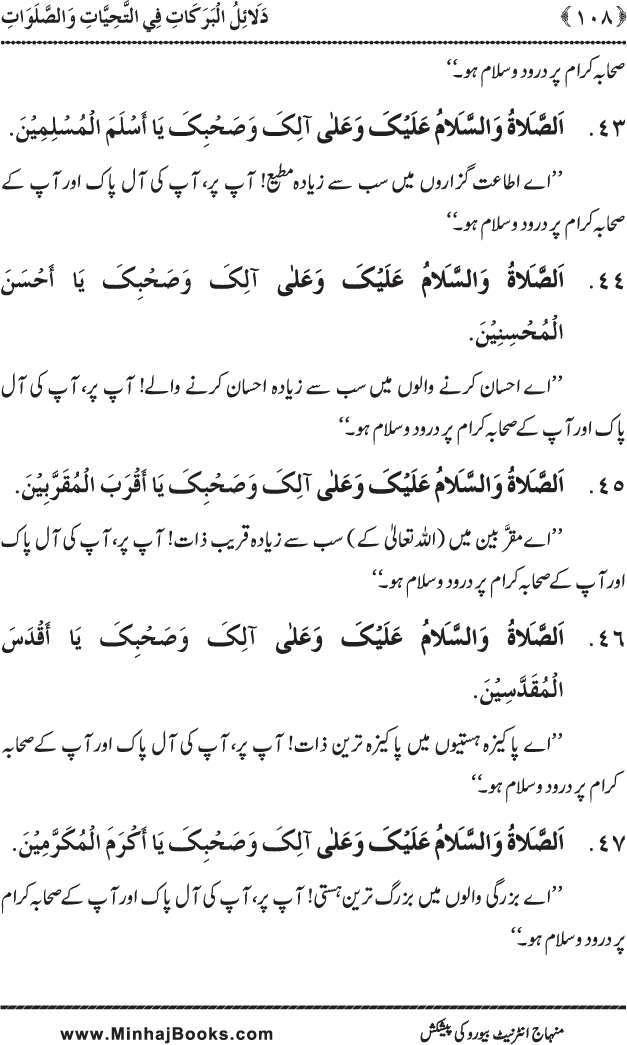 ﴿۱۰۸﴾ دَلَائِلُ الْبَرَكَاتِ فِي التَّحِيَّاتِ وَالصَّلَوَاتِ
صحابہ کرام پر درود و سلام ہو۔‘‘
٤٣. اَلصَّلَاةُ وَالسَّلَامُ عَلَيْکَ وَعَلٰی آلِکَ وَصَحْبِکَ يَا أَسْلَمَ الْمُسْلِمِيْنَ.
’’اے اطاعت گزاروں میں سب سے زیادہ مطیع! آپ پر، آپ کی آل پاک اور آپ کے
صحابہ کرام پر درود و سلام ہو۔‘‘
٤٤. اَلصَّلَاةُ وَالسَّلَامُ عَلَيْکَ وَعَلٰی آلِکَ وَصَحْبِکَ يَا أَحْسَنَ
الْمُحْسِنِيْنَ.
’’اے احسان کرنے والوں میں سب سے زیادہ احسان کرنے والے! آپ پر، آپ کی آل
پاک اور آپ کے صحابہ کرام پر درود و سلام ہو۔‘‘
٤٥. اَلصَّلَاةُ وَالسَّلَامُ عَلَيْکَ وَعَلٰی آلِکَ وَصَحْبِکَ يَا أَقْرَبَ الْمُقَرَّبِيْنَ.
’’اے مقرَّبین میں (اللہ تعالیٰ کے) سب سے زیادہ قریب ذات! آپ پر، آپ کی آل پاک
اور آپ کے صحابہ کرام پر درود و سلام ہو۔‘‘
٤٦. اَلصَّلَاةُ وَالسَّلَامُ عَلَيْکَ وَعَلٰی آلِکَ وَصَحْبِکَ يَا أَقْدَسَ
الْمُقَدَّسِيْنَ.
’’اے پاکیزہ ہستیوں میں پاکیزہ ترین ذات! آپ پر، آپ کی آل پاک اور آپ کے صحابہ
کرام پر درود و سلام ہو۔‘‘
٤٧. اَلصَّلَاةُ وَالسَّلَامُ عَلَيْکَ وَعَلٰی آلِکَ وَصَحْبِکَ يَا أَکْرَمَ الْمُکَرَّمِيْنَ.
’’اے بزرگی والوں میں بزرگ ترین ہستی! آپ پر، آپ کی آل پاک اور آپ کے صحابہ کرام
پر درود و سلام ہو۔‘‘
منہاج انٹرنیٹ بیورو کی پیشکش www.MinhajBooks.com